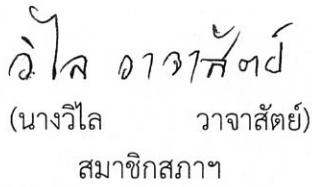 วิไล วาจาสัตย์
(นางวิไล วาจาสัตย์)
สมาชิกสภาฯ